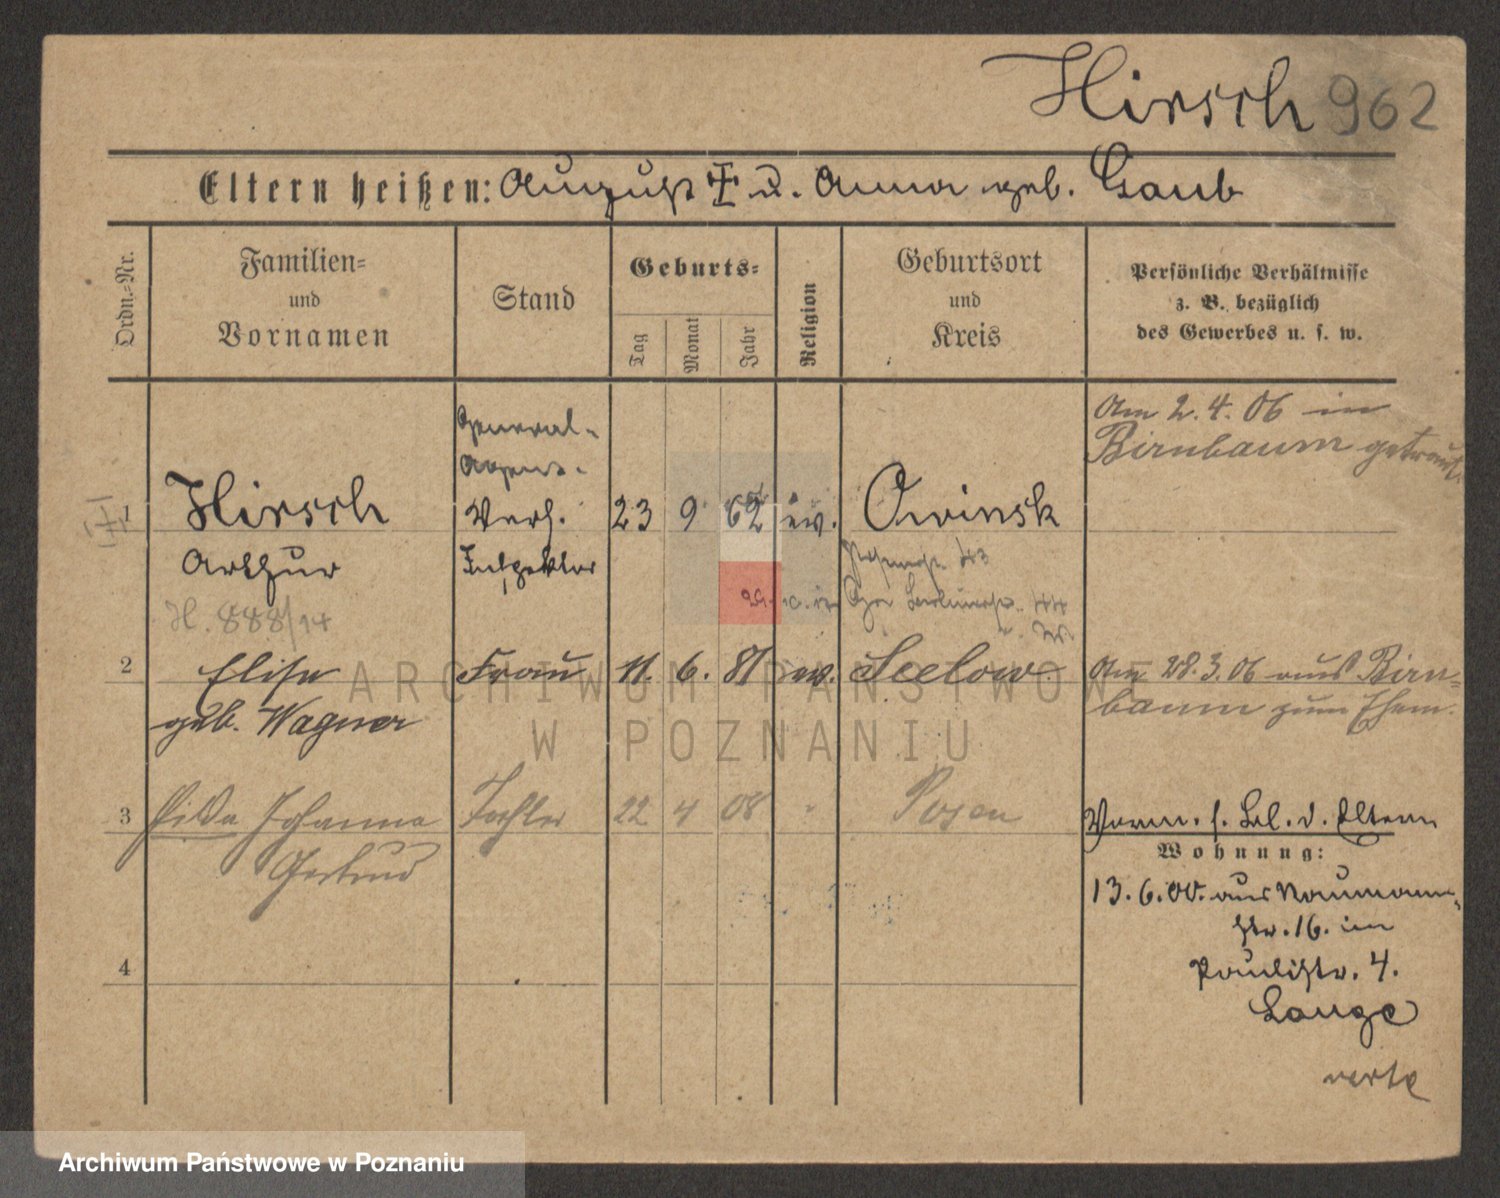 Hirsch 962
Eltern heißen: August u. Anna geb. Gaub
Ordn.-Nr.
Familien-
und
Vornamen
Stand
Geburts-
Tag
Monat
Jahr
Religion
Geburtsort
und
Kreis
Persönliche Verhältnisse
z. B. bezüglich
des Gewerbes u. s. w.
Am 2.4.06 in
Birnbaum getraut.
General-
Agent-
1 Hirsch Vers. 23 9 62 ev. Owinsk
Arthur Inspektor
43
H. 888/14
44
2 Elise Frau 11. 6. 81 ev. Seelow Am 28.3.06 aus Birn-
geb. Wagner baum zum Ehem.
3 Hilda Johanna Tochter 22 4 08 " Posen
Gertrud
Verm. s. Bl. d. Eltern
Wohnung:
13.6.00. aus Naumann-
str. 16. in
Paulistr. 4.
Lange
verte
4
ARCHIWUM PAŃSTWOWE
W POZNANIU
Archiwum Państwowe w Poznaniu